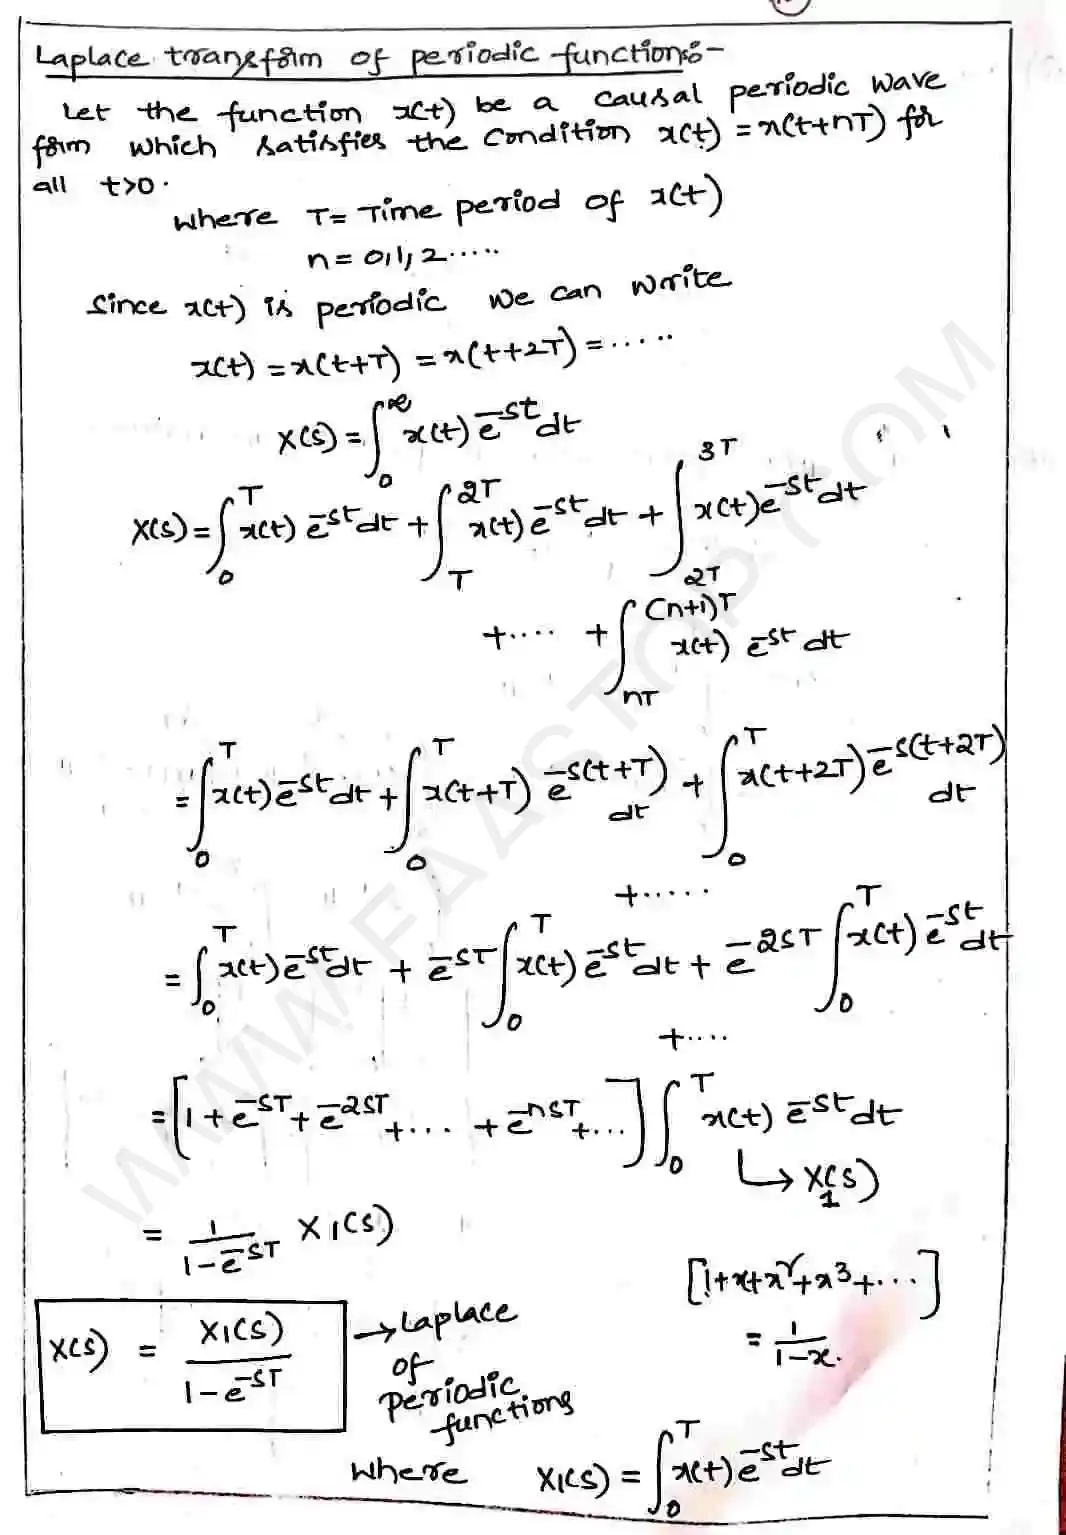 Laplace transform of periodic functions:-
Let the function x(t) be a causal periodic wave
form which satisfies the condition x(t) = x(t+nT) for
all t>0.
where T = Time period of x(t)
n = 0,1,2.....
Since x(t) is periodic we can write
x(t) = x(t+T) = x(t+2T) = .....
X(s) = ∫₀^∞ x(t) e^-st dt
X(s) = ∫₀^T x(t) e^-st dt + ∫_T^2T x(t) e^-st dt + ∫_2T^3T x(t) e^-st dt
+.... + ∫_nT^(n+1)T x(t) e^-st dt
= ∫₀^T x(t) e^-st dt + ∫₀^T x(t+T) e^-s(t+T) dt + ∫₀^T x(t+2T) e^-s(t+2T) dt
+.....
= ∫₀^T x(t) e^-st dt + e^-sT ∫₀^T x(t) e^-st dt + e^-2sT ∫₀^T x(t) e^-st dt
+....
= [1 + e^-sT + e^-2sT +... + e^-nsT +...] ∫₀^T x(t) e^-st dt
↳ X₁(s)
= 1/(1-e^-sT) X₁(s)
[1+x+x²+x³+...]
= 1/(1-x).
X(s) = X₁(s)/(1-e^-sT) → Laplace
of
periodic
functions
where X₁(s) = ∫₀^T x(t) e^-st dt
WWW.FAASTOP.COM